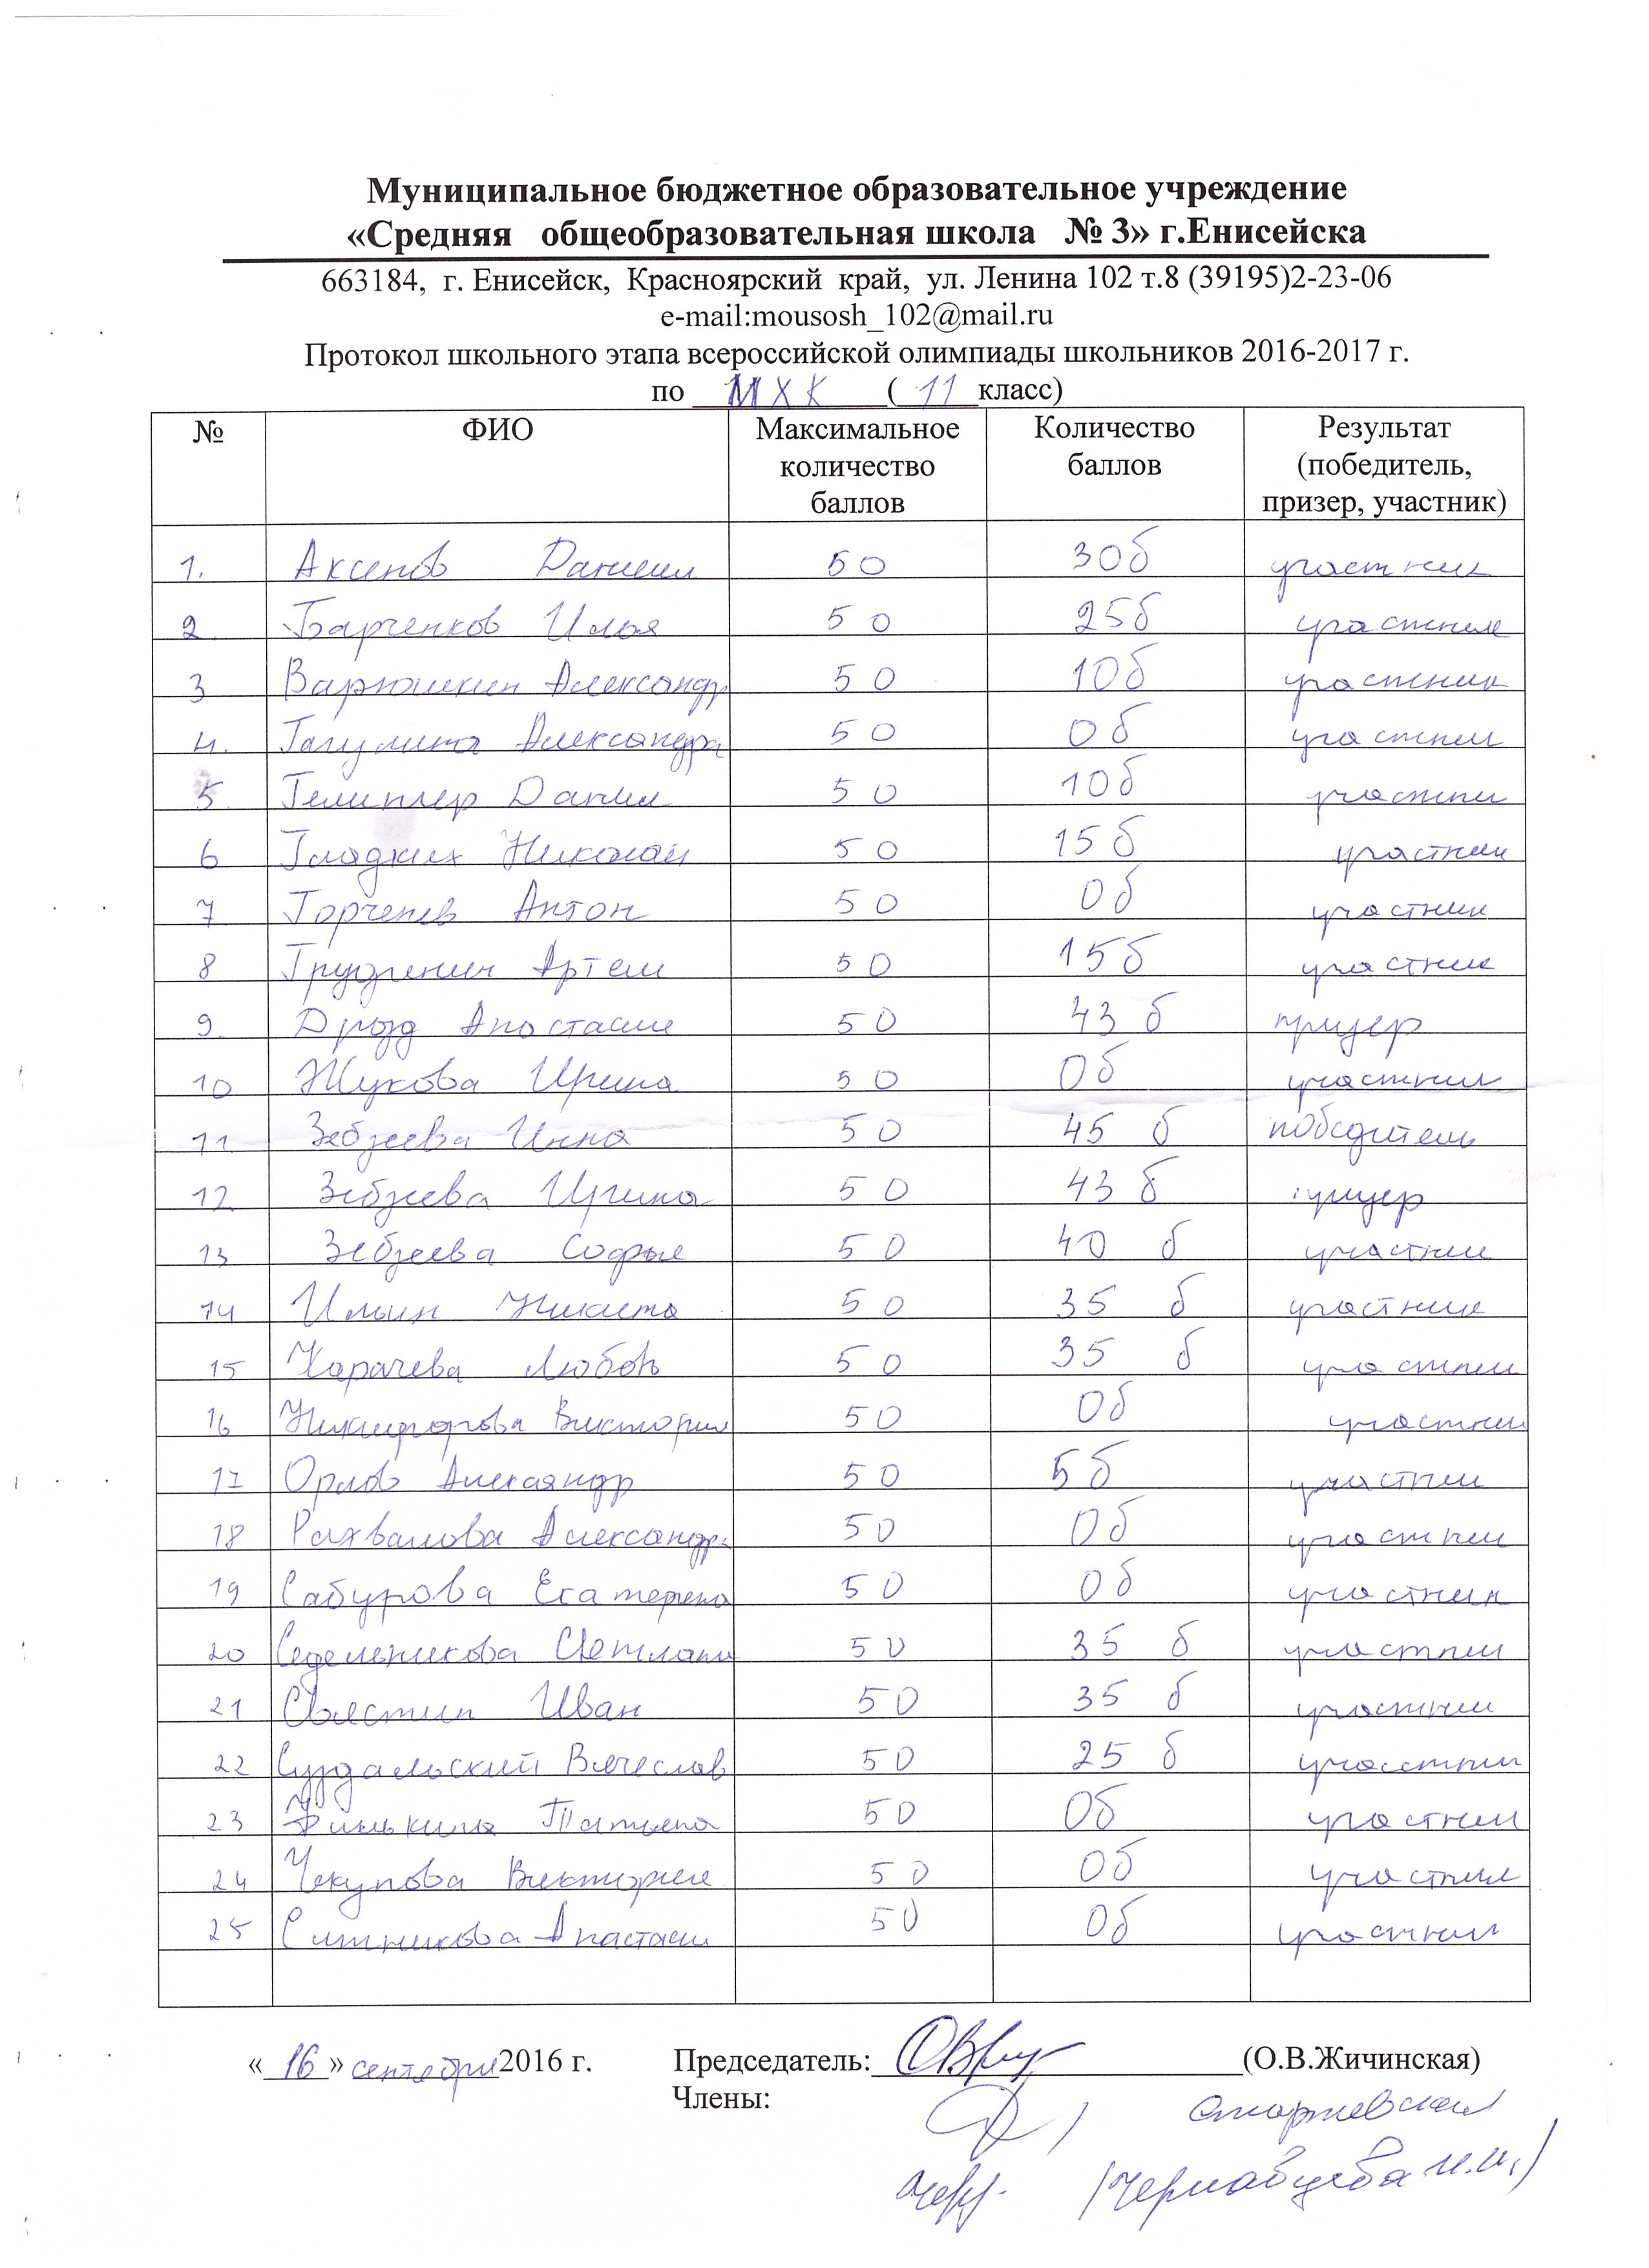 Муниципальное бюджетное образовательное учреждение
«Средняя общеобразовательная школа № 3» г.Енисейска
663184, г. Енисейск, Красноярский край, ул. Ленина 102 т.8 (39195)2-23-06
e-mail:mousosh_102@mail.ru
Протокол школьного этапа всероссийской олимпиады школьников 2016-2017 г.
по МХК (11 класс)
№ ФИО Максимальное количество баллов Количество баллов Результат (победитель, призер, участник)
1. Аксенов Даниил 50 30б участник
2 Барченков Илья 50 25б участник
3 Варюшкин Александр 50 10б участник
4. Гагулина Александра 50 0б участник
5 Данил 50 10б участник
6 Гладких Николай 50 15б участник
7 Антон 50 0б участник
8 Грудинин Артем 50 15б участник
9. Дрозд Анастасия 50 43 б призер
10 Жукова Ирина 50 0б участник
11 Зебзеева Инна 50 45 б победитель
12 Зебзеева Ирина 50 43 б призер
13 Зебзеева Софья 50 40 б участник
14 Ильин Никита 50 35 б участник
15 Карачева Любовь 50 35 б участник
16 Никифорова Виктория 50 0б участник
17 Орлов Александр 50 5б участник
18 Рахвалова Александра 50 0б участник
19 Сабурова Екатерина 50 0б участник
20 Седельникова Светлана 50 35 б участник
21 Иван 50 35 б участник
22 Суздальский Вячеслав 50 25 б участник
23 Татьяна 50 0б участник
24 Чекунова Виктория 50 0б участник
25 Ситникова Анастасия 50 0б участник
«16» сентября 2016 г. Председатель: (О.В.Жичинская)
Члены: